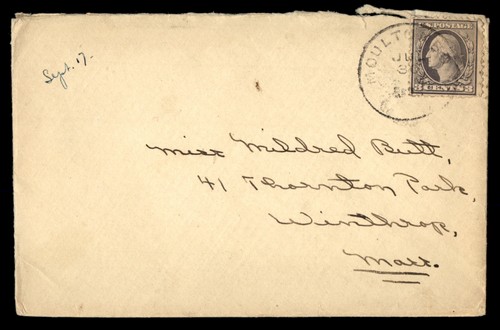 Sept. 17.
MOULTO
U.S. POSTAGE
3 CENTS 3
Miss Mildred Butt,
41 Thornton Park,
Winthrop,
Mass.